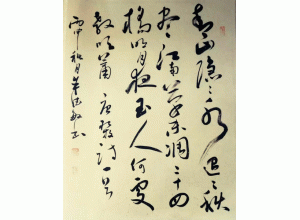 青山隐隐水迢迢秋
尽江南草未凋二十四
桥明月夜玉人何处
教吹箫 唐诗一首
丙申秋月